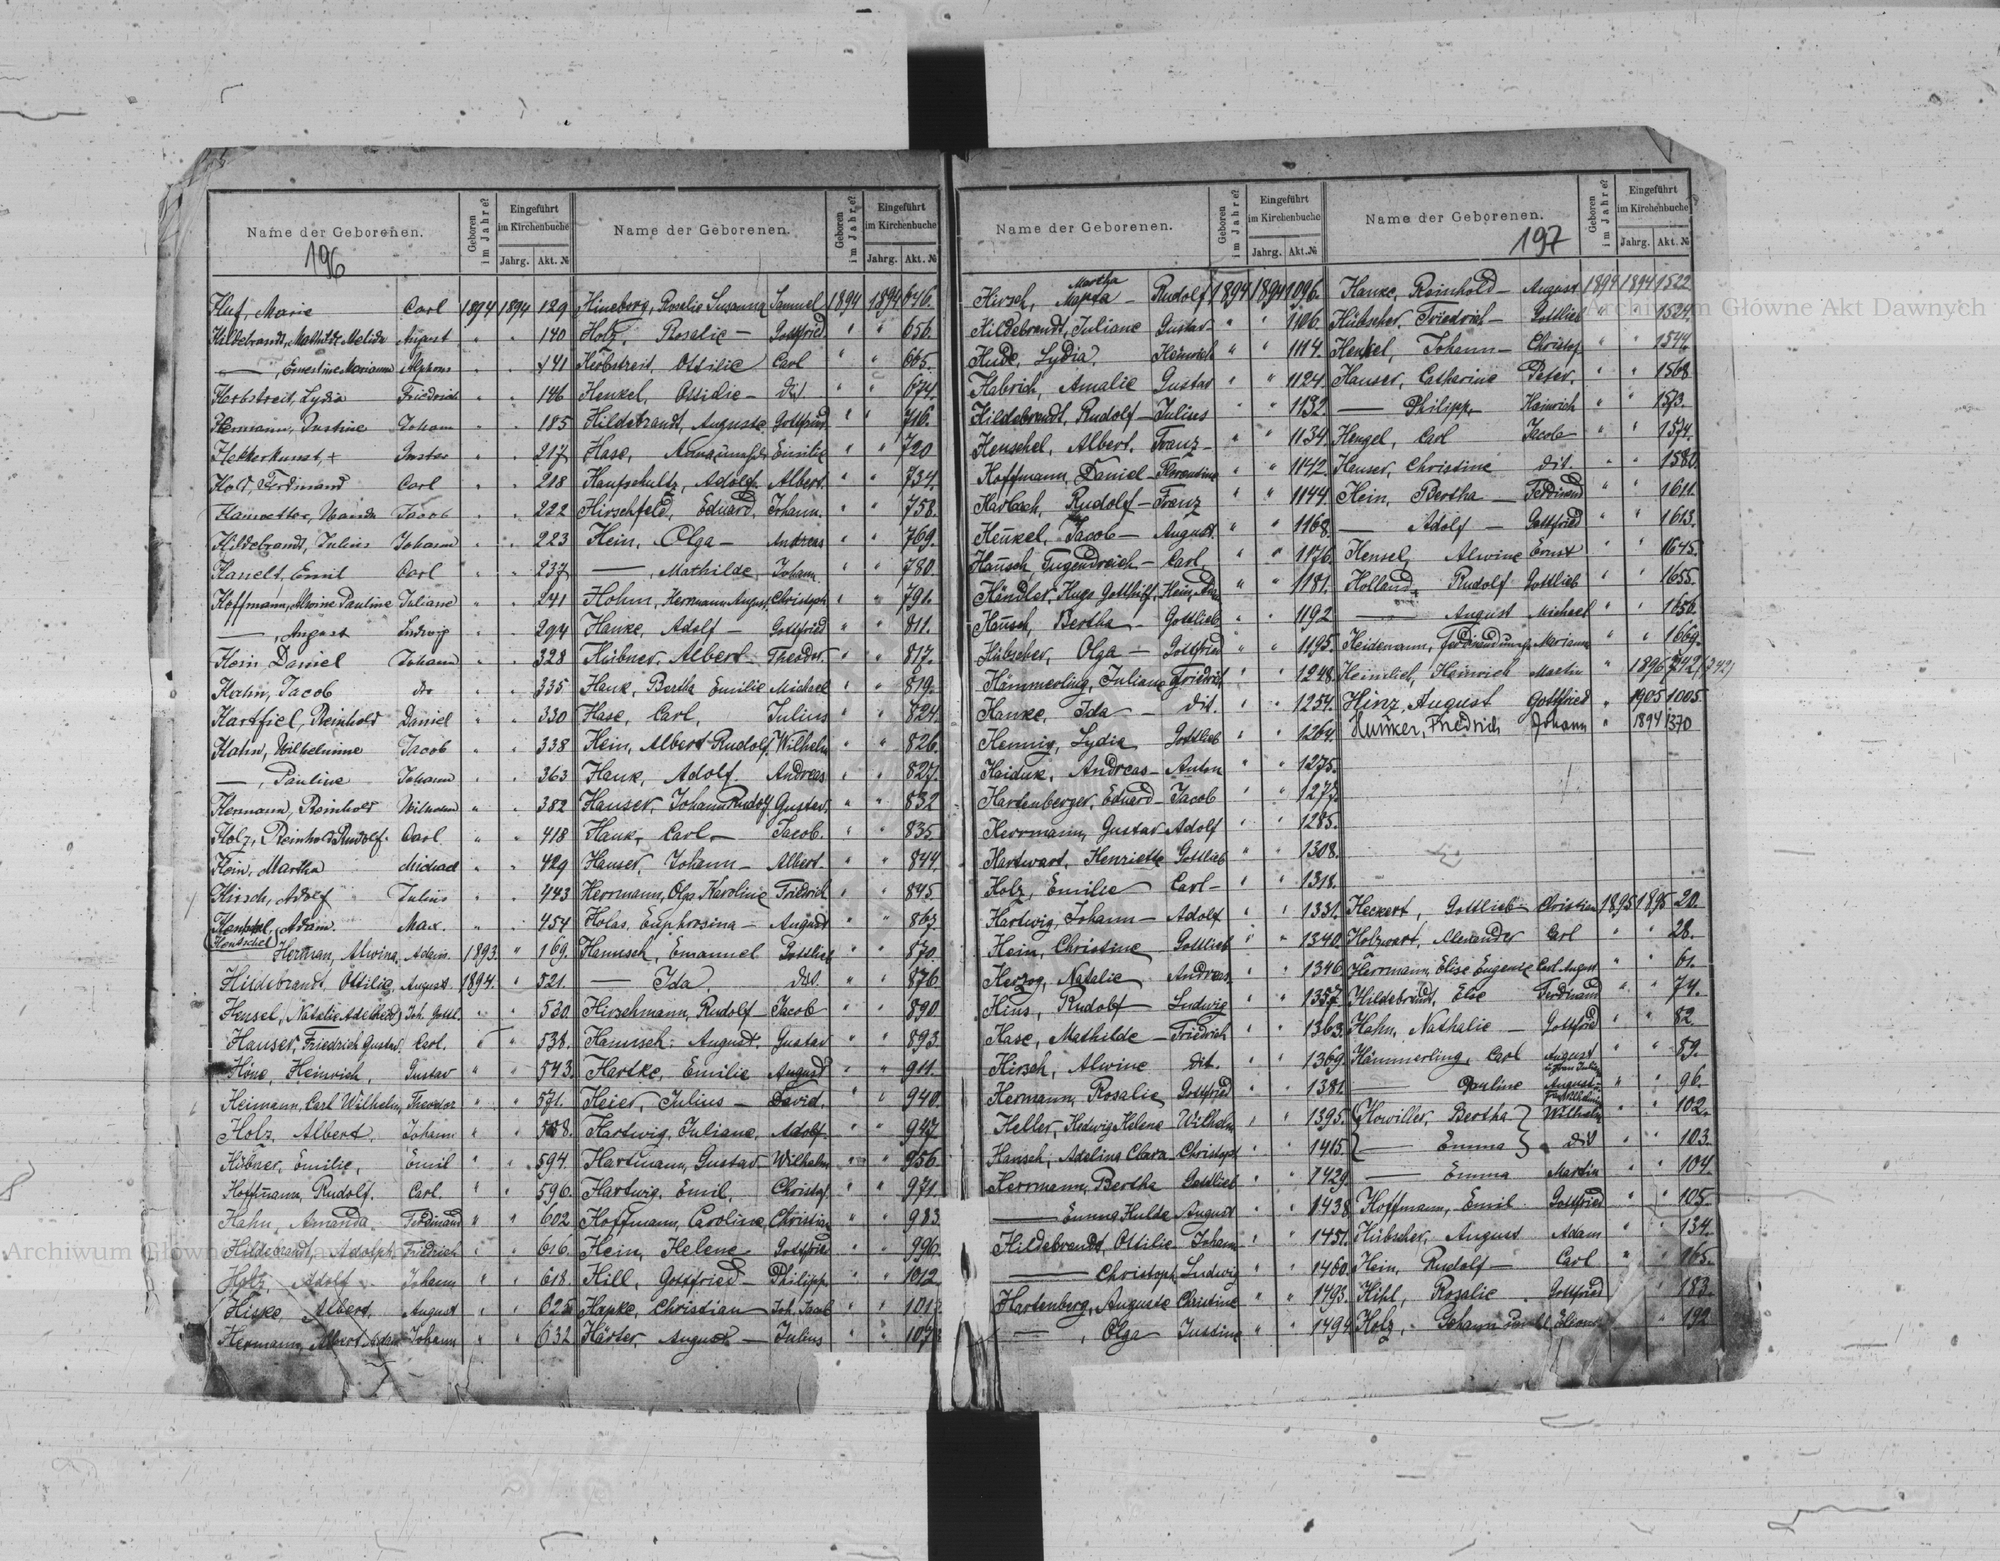 Name der Geborenen. Geboren im Jahre? Eingeführt im Kirchenbuche Jahrg. Akt. №
196
Huf, Marie Carl 1894 1894 129
Hildebrandt, Mathilde Melida August " " 140
—, Ernestine Mariann Alphons " " 141
Herbstreit, Lydia Friedrich " " 146
Hermann, Justine Johann " " 185
Gustav " " 217
Hold, Ferdinand Carl " " 218
Wanda Jacob " " 222
Hildebrandt, Julius Johann " " 223
Hanelt, Emil Carl " " 237
Hoffmann, Alwine Pauline Juliane " " 241
—, August Ludwig " " 294
Hein Daniel Johann " " 328
Hahn, Jacob dto " " 335
Hartfiel, Reinhold Daniel " " 330
Hahn, Wilhelmine Jacob " " 338
—, Pauline Johann " " 363
Hermann, Reinhold Wilhelm " " 382
Holz, Reinhold Rudolf Carl " " 418
Hein, Martha Michael " " 429
Hirsch, Adolf Julius " " 443
Adam. Max. " " 454
(Hentschel)
Herman, Alwina, Adam. 1893 " 169.
Hildebrandt, Ottilie, August. 1894. " 521.
Hensel, Natalie Adelheid Joh. Gottl. " " 530.
Hauser, Friedrich Gustav. Carl. " " 538.
Höne, Heinrich, Gustav " " 543.
Heimann, Carl Wilhelm, Theodor " " 571.
Holz, Albert, Johann " " 588.
Hübner, Emilie, Emil " " 594.
Hoffmann, Rudolf. Carl. " " 596.
Hahn, Amanda Ferdinand " " 602
Hildebrandt, Adolph Friedrich " " 616.
Holz, Adolf Johann " " 618.
Hiske, Albert, August " " 625
Hermann, Albert Adam Johann " " 632
Name der Geborenen. Geboren im Jahre? Eingeführt im Kirchenbuche Jahrg. Akt. №
Hineborg, Rosalie Susanna Samuel 1894 1894 646.
Holz, Rosalie — Gottfried " " 656.
Herbstreit, Ottilie Carl " " 665.
Henkel, Ottidie — dit. " " 674.
Hildebrandt, Auguste Gottfried " " 716.
Hase, Emilie " " 720
Haufschultz, Adolf Albert " " 734.
Hirschfeld, Eduard, Johann. " " 758.
Hein, Olga — Andreas " " 769.
—, Mathilde, Johann " " 780.
Hohm, Herrmann August, Christoph " " 791.
Hanke, Adolf — Gottfried " " 811.
Hübner, Albert Theodor. " " 817.
Hauk, Bertha Emilie Michael " " 819.
Hase, Carl, Julius " " 824.
Hein, Albert Rudolf, Wilhelm " " 826.
Hauk, Adolf Andreas " " 827.
Hauser, Johann Rudolf, Gustav " " 832
Hauk, Carl — Jacob. " " 835
Hauser, Johann — Albert " " 844.
Herrmann, Olga Karoline Friedrich " " 845.
Holas, Euphrosina — August " " 867
Hamsch, Emanuel Gottlieb " " 870.
— Ida. dit. " " 876.
Hirschmann, Rudolf — Jacob " " 890
Hamsch, August. Gustav " " 893.
Hartke, Emilie August " " 911.
Heier, Julius — David. " " 940.
Hartwig, Juliane, Adolf " " 947
Hartmann, Gustav — Wilhelm " " 956.
Hartwig, Emil, Christof " " 971.
Hoffmann, Caroline, Christian " " 983
Hein, Helene Gottfried " " 996.
Hill, Gottfried — Philipp " " 1012
Hapke, Christian Joh. Jacob " "
Härter, August — Julius " "
Name der Geborenen. Geboren im Jahre? Eingeführt im Kirchenbuche Jahrg. Akt. №
Martha
Hirsch, Marta — Rudolf 1894 1894 1096.
Hildebrandt, Juliane Gustav — " " 1106.
Hude, Lydia, Heinrich " " 1114.
Habrich, Amalie Gustav " " 1124.
Hildebrandt, Rudolf — Julius " " 1132.
Henschel, Albert, Franz — " " 1134
Hoffmann, Daniel — Florentine " " 1142.
Harbach, Rudolf — Franz " " 1144.
Henkel, Jacob — August. " " 1168.
Hausch, Tugendreich — Carl, " " 1176.
Händler, Hugo Gotthilf, " " 1181.
Hausch, Bertha — Gottlieb " " 1192
Hübscher, Olga — Gottfried " " 1195.
Hämmerling, Juliane Friedrich " " 1248.
Hanke, Ida — dit. " " 1254.
Hennig, Lydia Gottlieb " " 1264.
Haiduk, Andreas — Anton " " 1275.
Hartenberger, Eduard — Jacob " " 1277.
Herrmann, Gustav Adolf " " 1285.
Hartwart, Henriette Gottlieb " " 1308.
Holz, Emilie Carl — " " 1318.
Hartwig, Johann — Adolf " " 1331.
Hein, Christine Gottlieb " " 1340.
Herzog, Natalie Andreas " " 1346.
Hius, Rudolf — Ludwig " " 1357.
Hase, Mathilde — Friedrich " " 1363.
Hirsch, Alwine dit. " " 1369.
Hermann, Rosalie Gottfried " " 1381.
Heller, Hedwig Helene Wilhelm " " 1395.
Hansch, Adelina Clara — Christoph " " 1415.
Herrmann, Bertha Gottlieb " " 1429.
— Emma Hulda August " " 1438.
Hildebrandt, Ottilie Johann " " 1451.
— Christoph Ludwig " " 1460.
Hartenberg, Auguste Christine " " 1493.
—, Olga Justine " " 1494.
Name der Geborenen. Geboren im Jahre? Eingeführt im Kirchenbuche Jahrg. Akt. №
197
Hanke, Reinhold — August 1894 1894 1522
Hübscher, Friedrich — Gottlieb " " 1524.
Henkel, Johann — Christof " " 1544.
Hauser, Catharine Peter. " " 1568
— Philipp — Heinrich " " 1573.
Hengel, Carl Jacob " " 1574.
Hauser, Christine dit. " " 1580.
Hein, Bertha — Ferdinand " " 1611.
— Adolf — Gottfried " " 1613.
Hensel, Alwine Ernst " " 1645.
Holland, Rudolf Gottlieb " " 1655.
— August Michael " " 1656.
Heidemann, Mariann " " 1669.
Heimlich, Heinrich Martin " 1896 742
Hinz, August Gottfried " 1905 1005
Hunker, Friedrich Johann " 1894 1370
Heckert, Gottlieb — Christian 1895 1895 20.
Holzwart, Alexander Carl " " 28.
Herrmann, Elise Eugenie Carl August " " 61.
Hildebrandt, Else Ferdinand " " 74.
Hahn, Nathalie — Gottfried " " 82
Hämmerling, Carl August " " 89.
— Pauline August " " 96.
Howiller, Bertha Wilhelm " " 102.
— Emma dit " " 103.
— Emma Martin " " 104.
Hoffmann, Emil Gottfried " " 105.
Hübscher, August Adam " " 134.
Hein, Rudolf — Carl " " 165.
Hihl, Rosalie Gottfried " " 183.
Holz, Johann " " 192
Archiwum Główne Akt Dawnych
Archiwum Główne Akt Dawnych